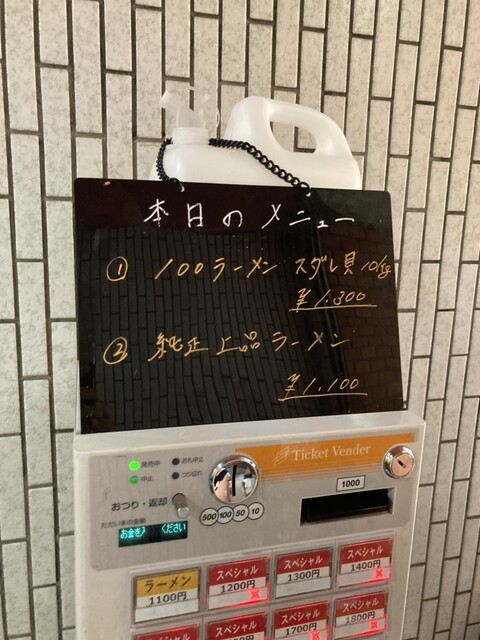 本日のメニュー
① 100ラーメン スダレ貝 10kg
¥1,300
② 純正上品ラーメン
¥1,100
Ticket Vender
発売中
お札中止
中止
つり切れ
1000
おつり・返却
500 100 50 10
ただいまの金額
お金を入 ください
ラーメン
1100円
スペシャル
1200円
スペシャル
1300円
スペシャル
1400円
スペシャル
スペシャル
スペシャル
1700円
スペシャル
1800円